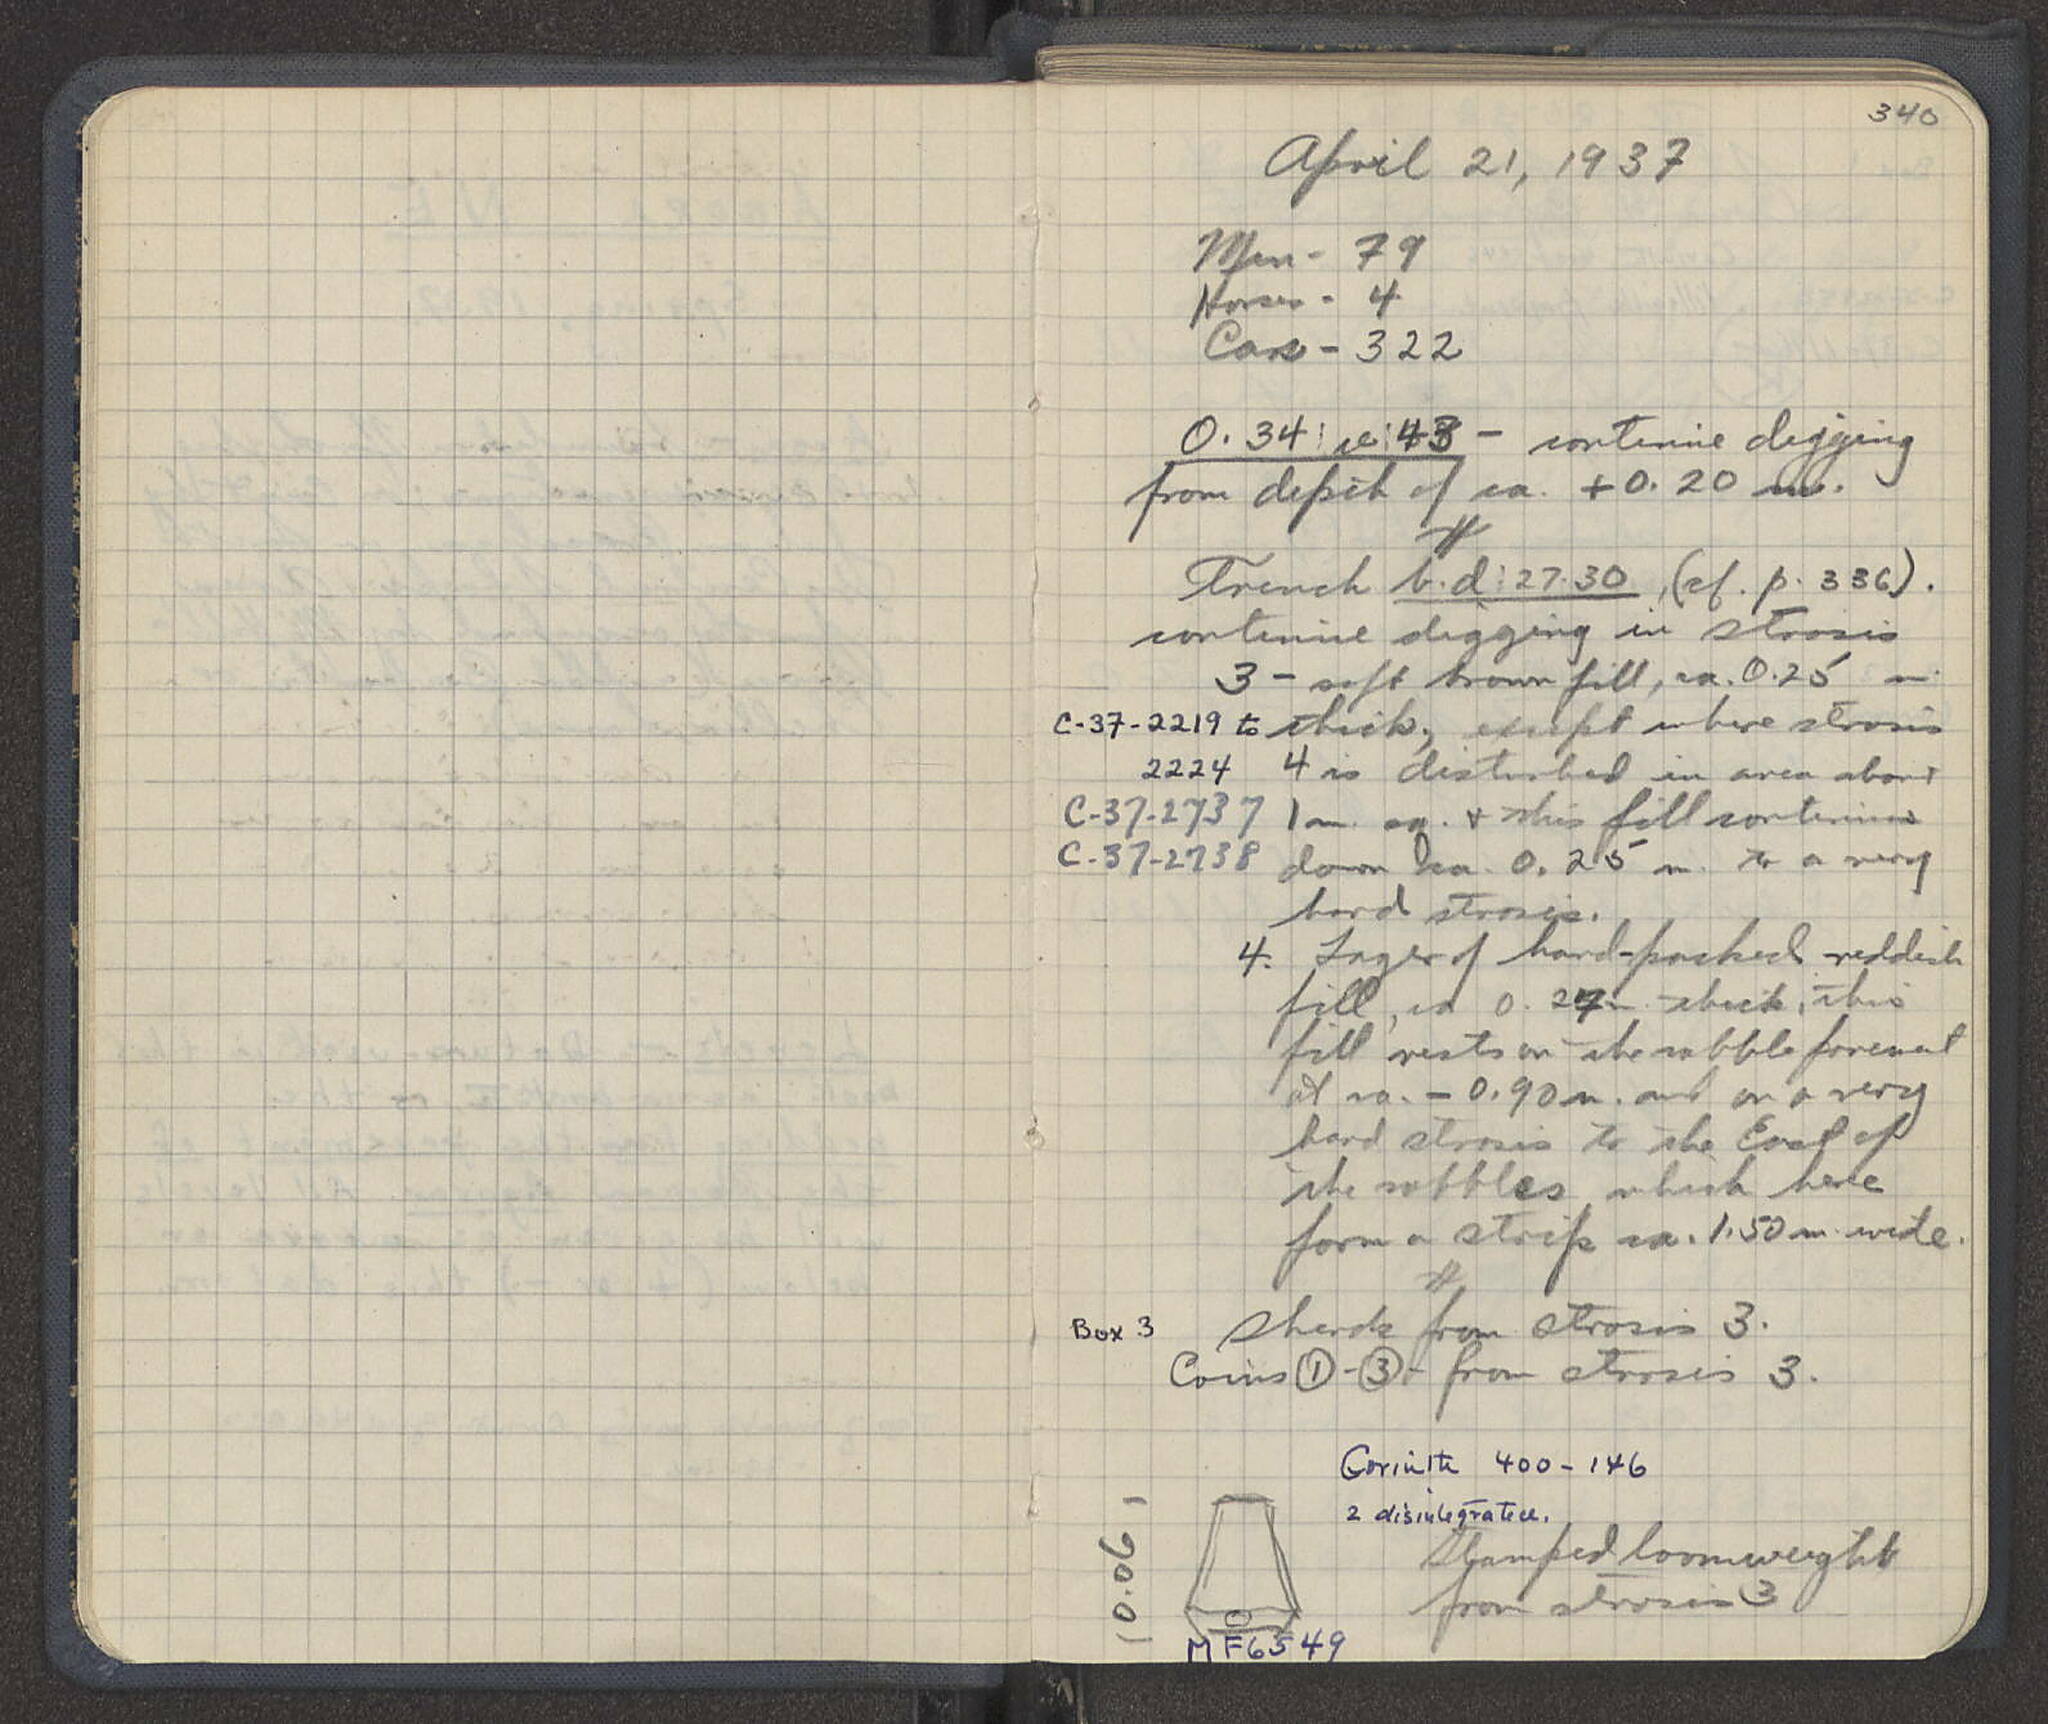 340
April 21, 1937
Men - 79
Horses - 4
Cars - 322
O. 34: 43 - continue digging
from depth of ca. +0.20 m.
#
Trench b.d:27.30, (cf. p. 336).
continue digging in strosis
3 - soft brown fill, ca. 0.25 m
C-37-2219 to thick, except where strosis
2224 4 is disturbed in area about
C-37-2737 1 m. sq. + this fill continues
C-37-2738 down ca. 0.25 m. to a very
hard strosis.
4. Layer of hard-packed reddish
fill, ca 0.27 m thick, this
fill rests on the cobble pavement
at ca. - 0.90 m. and on a very
hard strosis to the East of
the cobbles which here
form a strip ca. 1.50 m. wide.
#
Box 3 Sherds from strosis 3.
Coins ① - ③ - from strosis 3.
Corinth 400-146
2 disintegrated.
0.06
Stamped loomweight
from strosis 3
MF6549